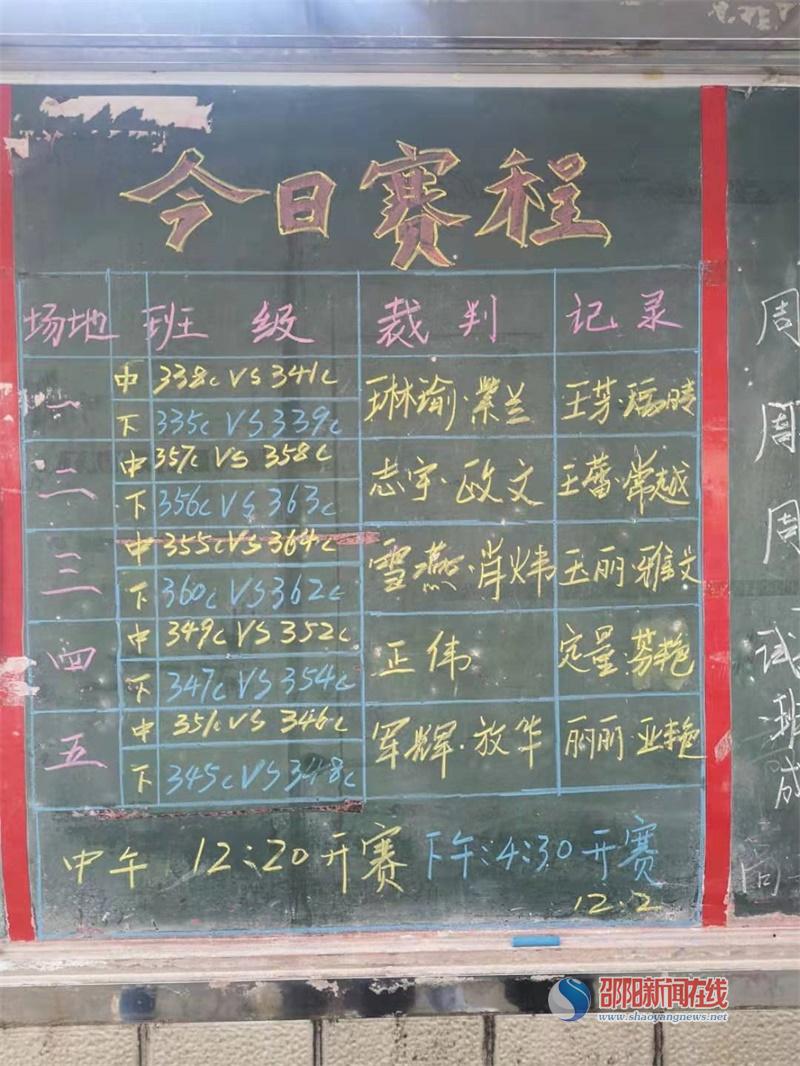 今日赛程
场地 班级 裁判 记录
一 中 338c VS 341c 琳瑜·紫兰 王芳·瑶晴
下 335c VS 339c
二 中 357c VS 358c 志宇·政文 王蕾·常越
下 356c VS 363c
三 中 355c VS 364c 雪燕·肖炜 玉丽·雅文
下 360c VS 362c
四 中 349c VS 352c 正伟 定量·芬艳
下 347c VS 354c
五 中 351c VS 346c 军辉·放华 丽丽·亚艳
下 345c VS 348c
中午 12:20开赛 下午:4:30开赛
12.2
周
周
周
试
班
成
邵阳新闻在线
www.shaoyangnews.net